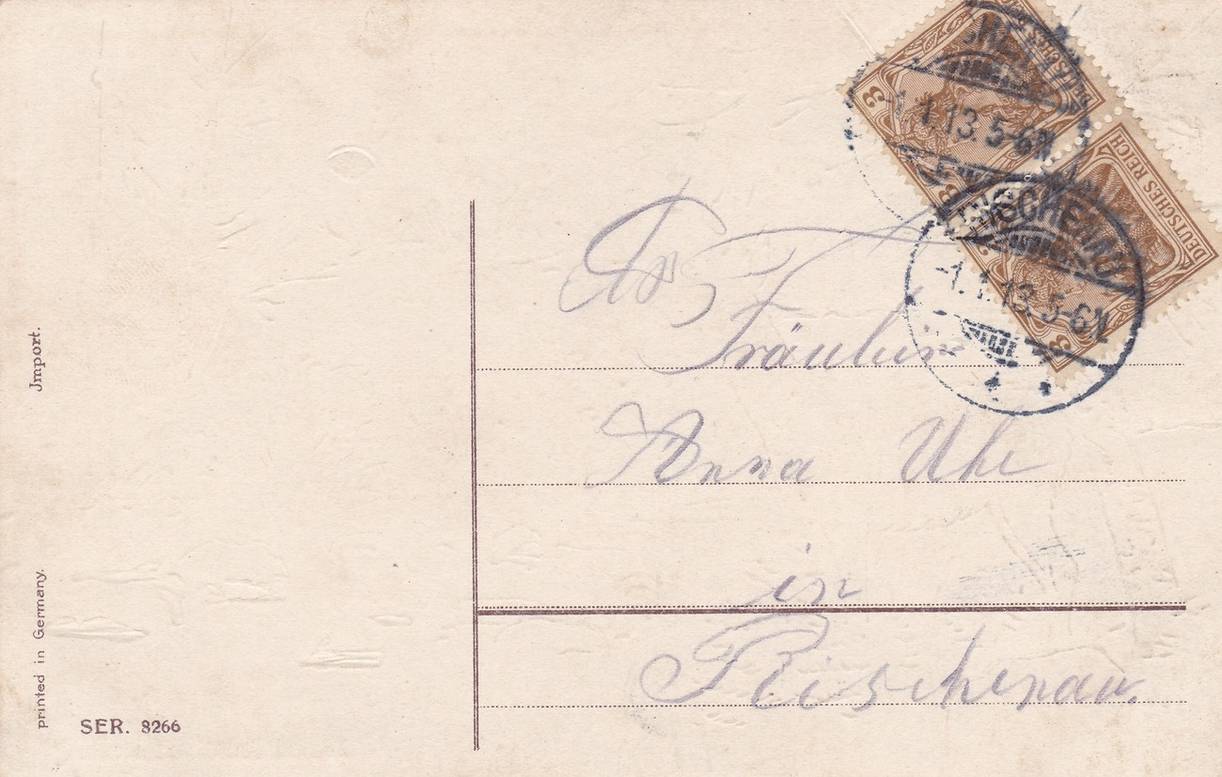 Jmport.
printed in Germany.
SER. 8266
3
DEUTSCHES REICH
3
DEUTSCHES REICH
3
-1.1.13.5-6N
-1.1.13.5-6N
An
Fräulein
Anna Uhe
in
Reischenau.